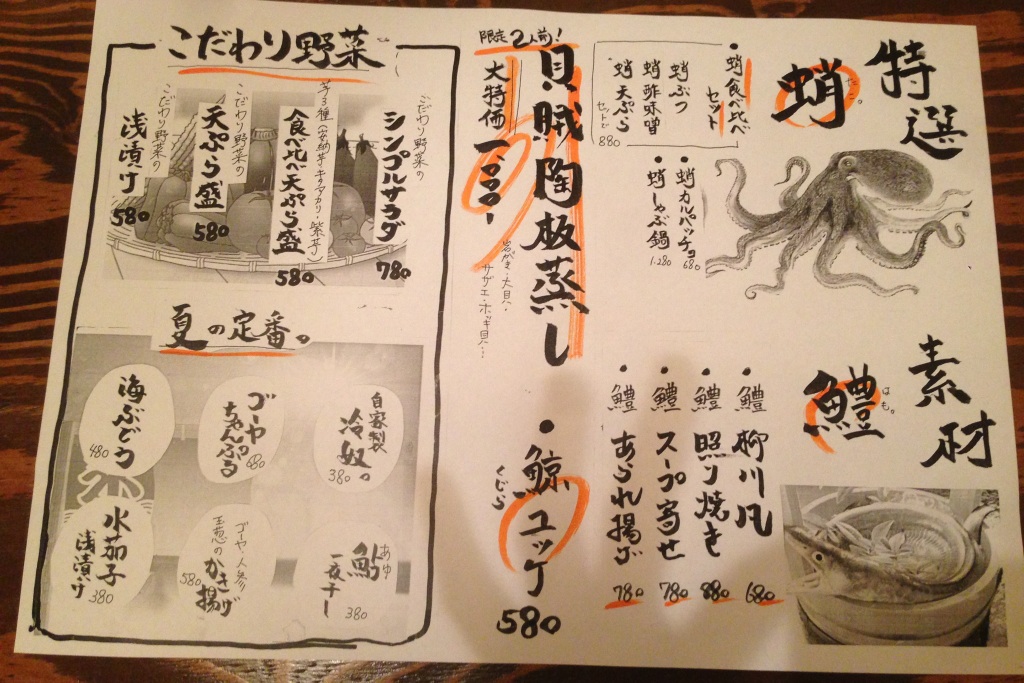 特選
素材
蛸
たこ。
・蛸食べ比べ
セット
蛸ぶつ
蛸酢味噌
蛸天ぷら
セットで
880
・蛸カルパッチョ
680
・蛸しゃぶ鍋
1.280
鱧
はも。
・鱧柳川風
680
・鱧照り焼き
880
・鱧スープ寄せ
780
・鱧あられ揚げ
780
限定2人前!
貝賊陶板蒸し
大特価
一、〇〇〇ー
岩がき・大貝・
サザエ・ホッキ貝…
・鯨ユッケ
くじら
580
こだわり野菜。
こだわり野菜の
シンプルサラダ
780
芋3種(安納芋・キタアカリ・紫芋)
食べ比べ天ぷら盛
580
こだわり野菜の
天ぷら盛
580
こだわり野菜の
浅漬け
580
夏の定番。
自家製
冷奴。
380
ゴーヤ
ちゃんぷる
680
海ぶどう
480
鮎
あゆ
一夜干し
380
ゴーヤ・人参
玉葱のかき揚げ
580
水茄子
浅漬け
380